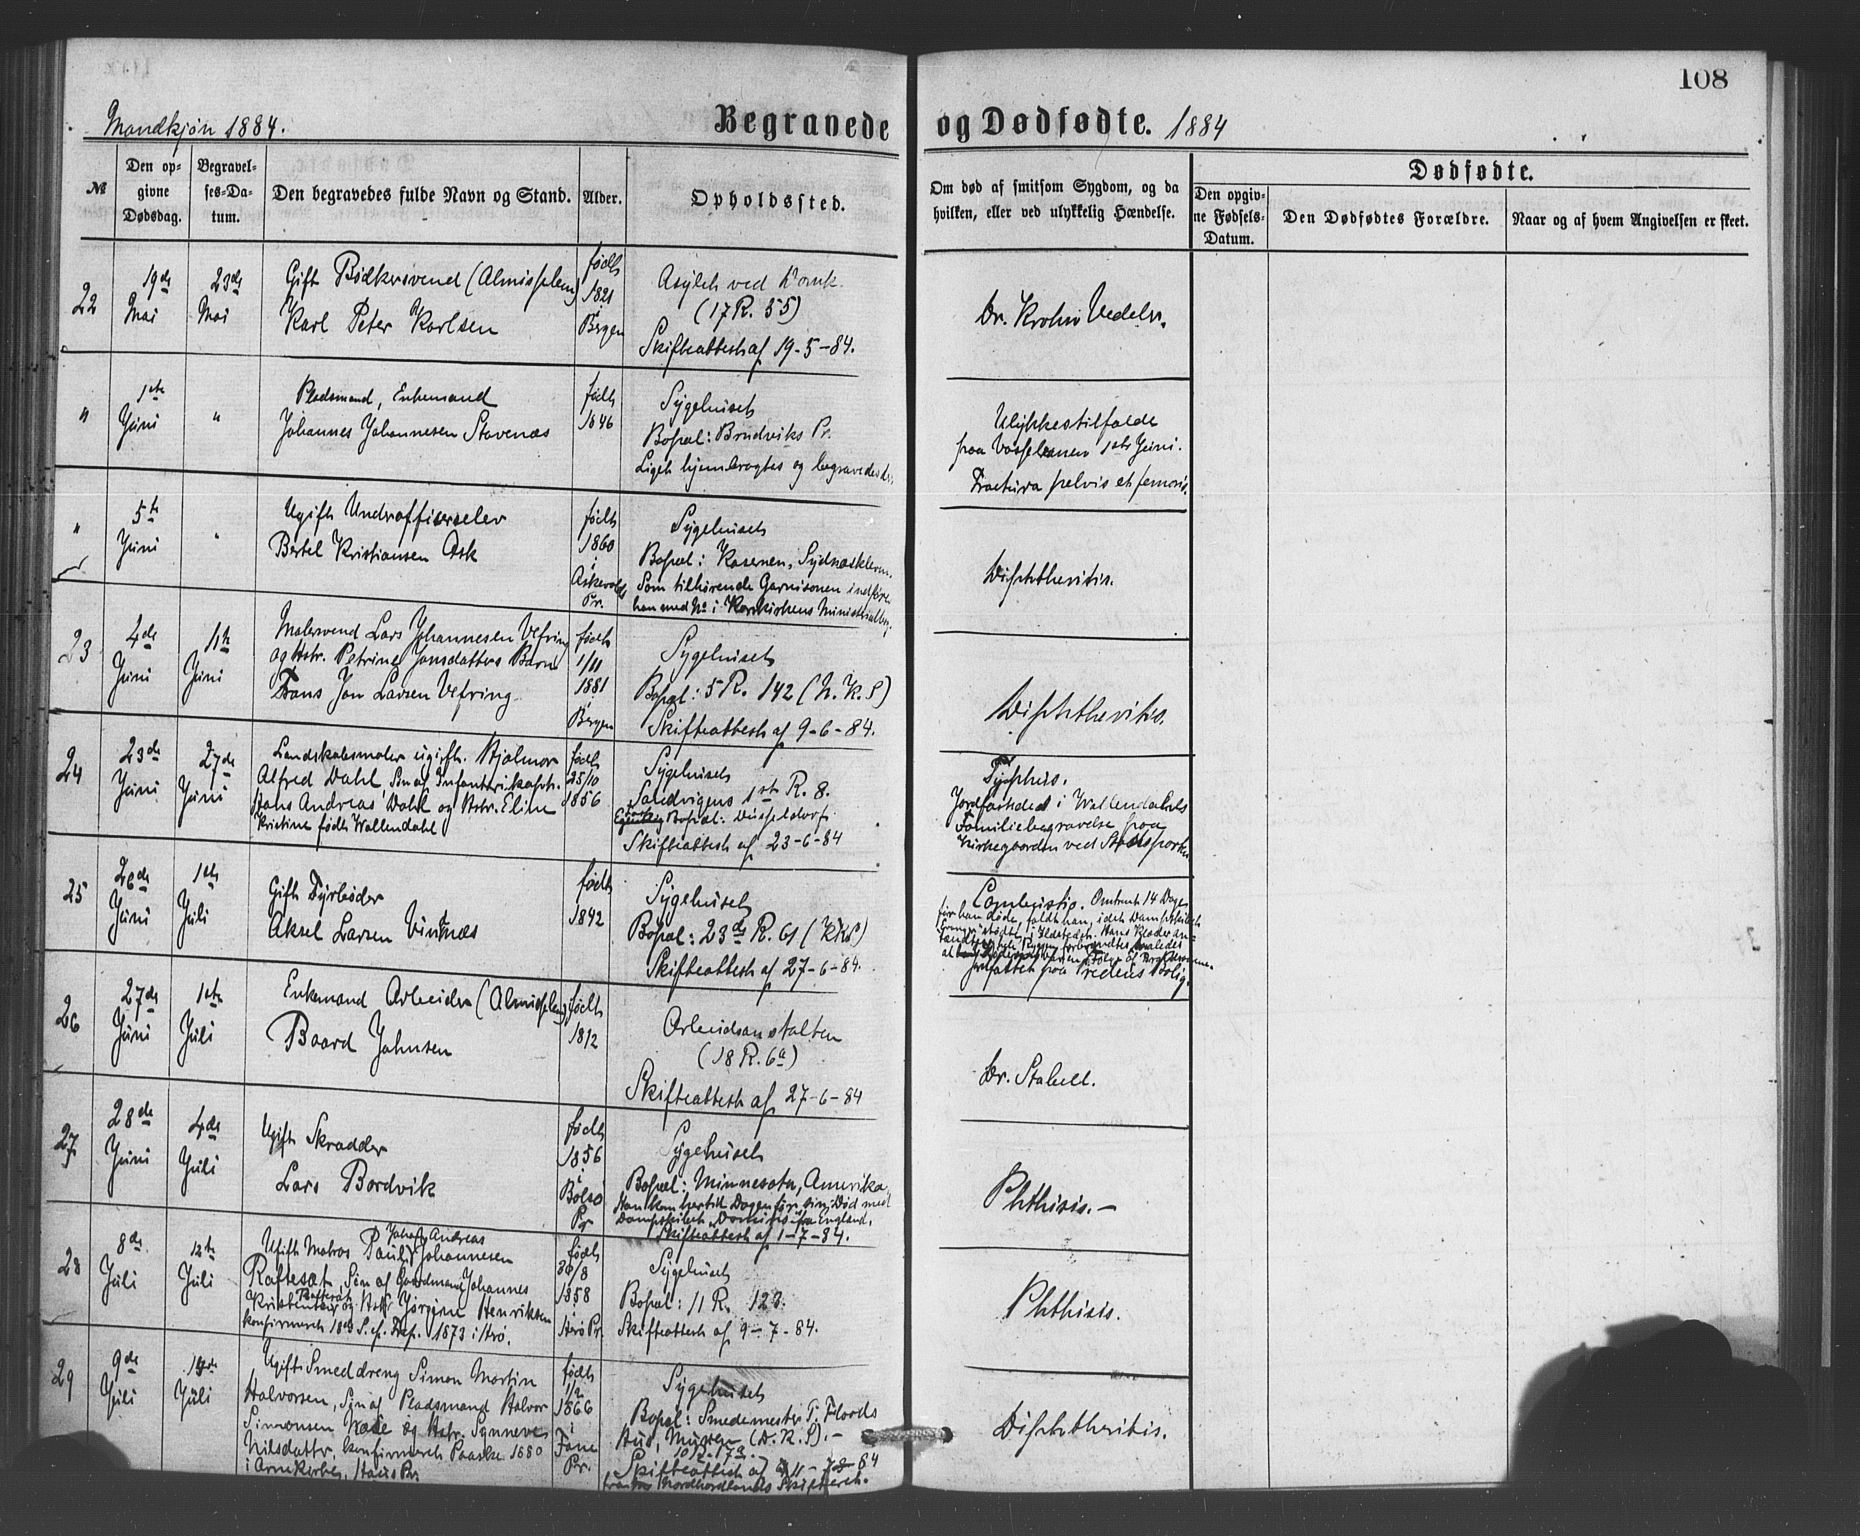 108
Mandkjön 1884.
Begravede og Dødfødte. 1884
№
Den op-
givne
Dødsdag.
Begravel-
ses-Da-
tum.
Den begravedes fulde Navn og Stand.
Alder.
Opholdssted.
Om død af smitsom Sygdom, og da
hvilken, eller ved ulykkelig Hændelse.
Dødfødte.
Den opgiv-
ne Fødsels-
Datum.
Den Dødfødtes Forældre.
Naar og af hvem Angivelsen er skeet.
22
19de
Mai
23de
Mai
Gift Bödkersvend (Almisselem)
Karl Peter Karlsen
födt
1821
i
Bergen
Asylet ved Domk.
(17 R. 55)
Skifteattest af 19-5-84.
Dr. Krohn Vedeler.
"
1ste
Juni
"
Pladsmand, Enkemand
Johannes Johannesen Stavenæs
födt
1846
Sygehuset
Bopæl: Brudviks Pr.
Liget hjembragtes og begravedes der.
Ulykkestilfælde
paa Vossebanen 1ste Juni.
Fractura pelvis et femoris.
"
5te
Juni
"
Ugift Underofficerselev
Bertel Kristiansen Ask
födt
1860
i
Askevolds
Pr.
Sygehuset
Bopæl: Kasernen, Sydnæskleven.
Som tilhörende Garnisonen indföres
han med № i Korskirkens Ministerialbog.
Diphtheritis.
23
4de
Juni
11te
Juni
Malersvend Lars Johannesen Vefring
og Hstr. Petrine Jonsdatters Barn
Frans Jon Larsen Vefring
födt
1/11
1881
i
Bergen
Sygehuset
Bopæl: 5 R. 142 (N. K. S)
Skifteattest af 9-6-84.
Diphtheritis.
24
23de
Juni
27de
Juni
Landskabsmaler ugift. Hjalmar
Alfred Dahl, Sön af Infanterikapt.
Hans Andreas Dahl og Hstr. Eline
Kristine födt Wallendahl
födt
25/10
1856
Sygehuset
Sandvigens 1ste R. 8.
Bopæl: Düsseldorf
Skifteattest af 23-6-84
Typhus.
Jordfæstedes i Wallendahls
Familiebegravelse paa
Kirkegaarden ved Stadsporten
25
26de
Juni
1ste
Juli
Gift Fyrböder
Aksel Larsen Vintnæs
födt
1842
Sygehuset
Bopæl: 23de R. 61 (KKS)
Skifteattest af 27-6-84.
Combustio. Omtrent 14 Dage
för han döde, faldt han, i det Dampskibet
stödte, i Ildstedet. Hans Klæder an-
tændtes, hele Ryggen forbrændtes saaledes
at Döden blev en Fölge af Brandsaarene.
forfattet paa Prestens Bolig.
26
27de
Juni
1ste
Juli
Enkemand Arbeider (Almisselem)
Baard Johnsen
födt
1812
Arbeidsanstalten
(18 R. 6a)
Skifteattest af 27-6-84
Dr. Stabell.
27
28de
Juni
4de
Juli
Ugift Skrædder
Lars Bordvik
födt
1856
i
Bolsö
Pr
Sygehuset
Bopæl: Minnesota, Amerika.
Han kom hertil Dagen för sin Död med
Dampskibet "Domino" fra England.
Skifteattest af 1-7-84.
Phthisis.-
28
8de
Juli
12te
Juli
Ugift Matros Paul Johan Andreas Johannesen
Raftesæt, Sön af Gaardmand Johannes
Kristensen Raftesæt og Hstr Jörgine Henriksen
konfirmeret 18de S. ef. Tref. 1873 i Herö.
födt
30/8
1858
i
Herö Pr.
Sygehuset
Bopæl: 11 R. 123.
Skifteattest af 9-7-84.
Phthisis.
29
9de
Juli
Juli
Ugift Smeddreng Simon Martin
Halvorsen, Sön af Pladsmand Halvor
Simonsen og Hstr. Synneve
Nilsdatter, konfirmeret Paaske 1880
i Arne Kirke, Haus Pr.
födt
1/2
1866
i
Fane
Pr.
Sygehuset
Bopæl: Smedemester T. Floods
Hus, Muren (D. K. S).-
10 R. 17a.
Skifteattest af 11-7-84
fra Nordhordlands Skifteret.
Diphtheritis.